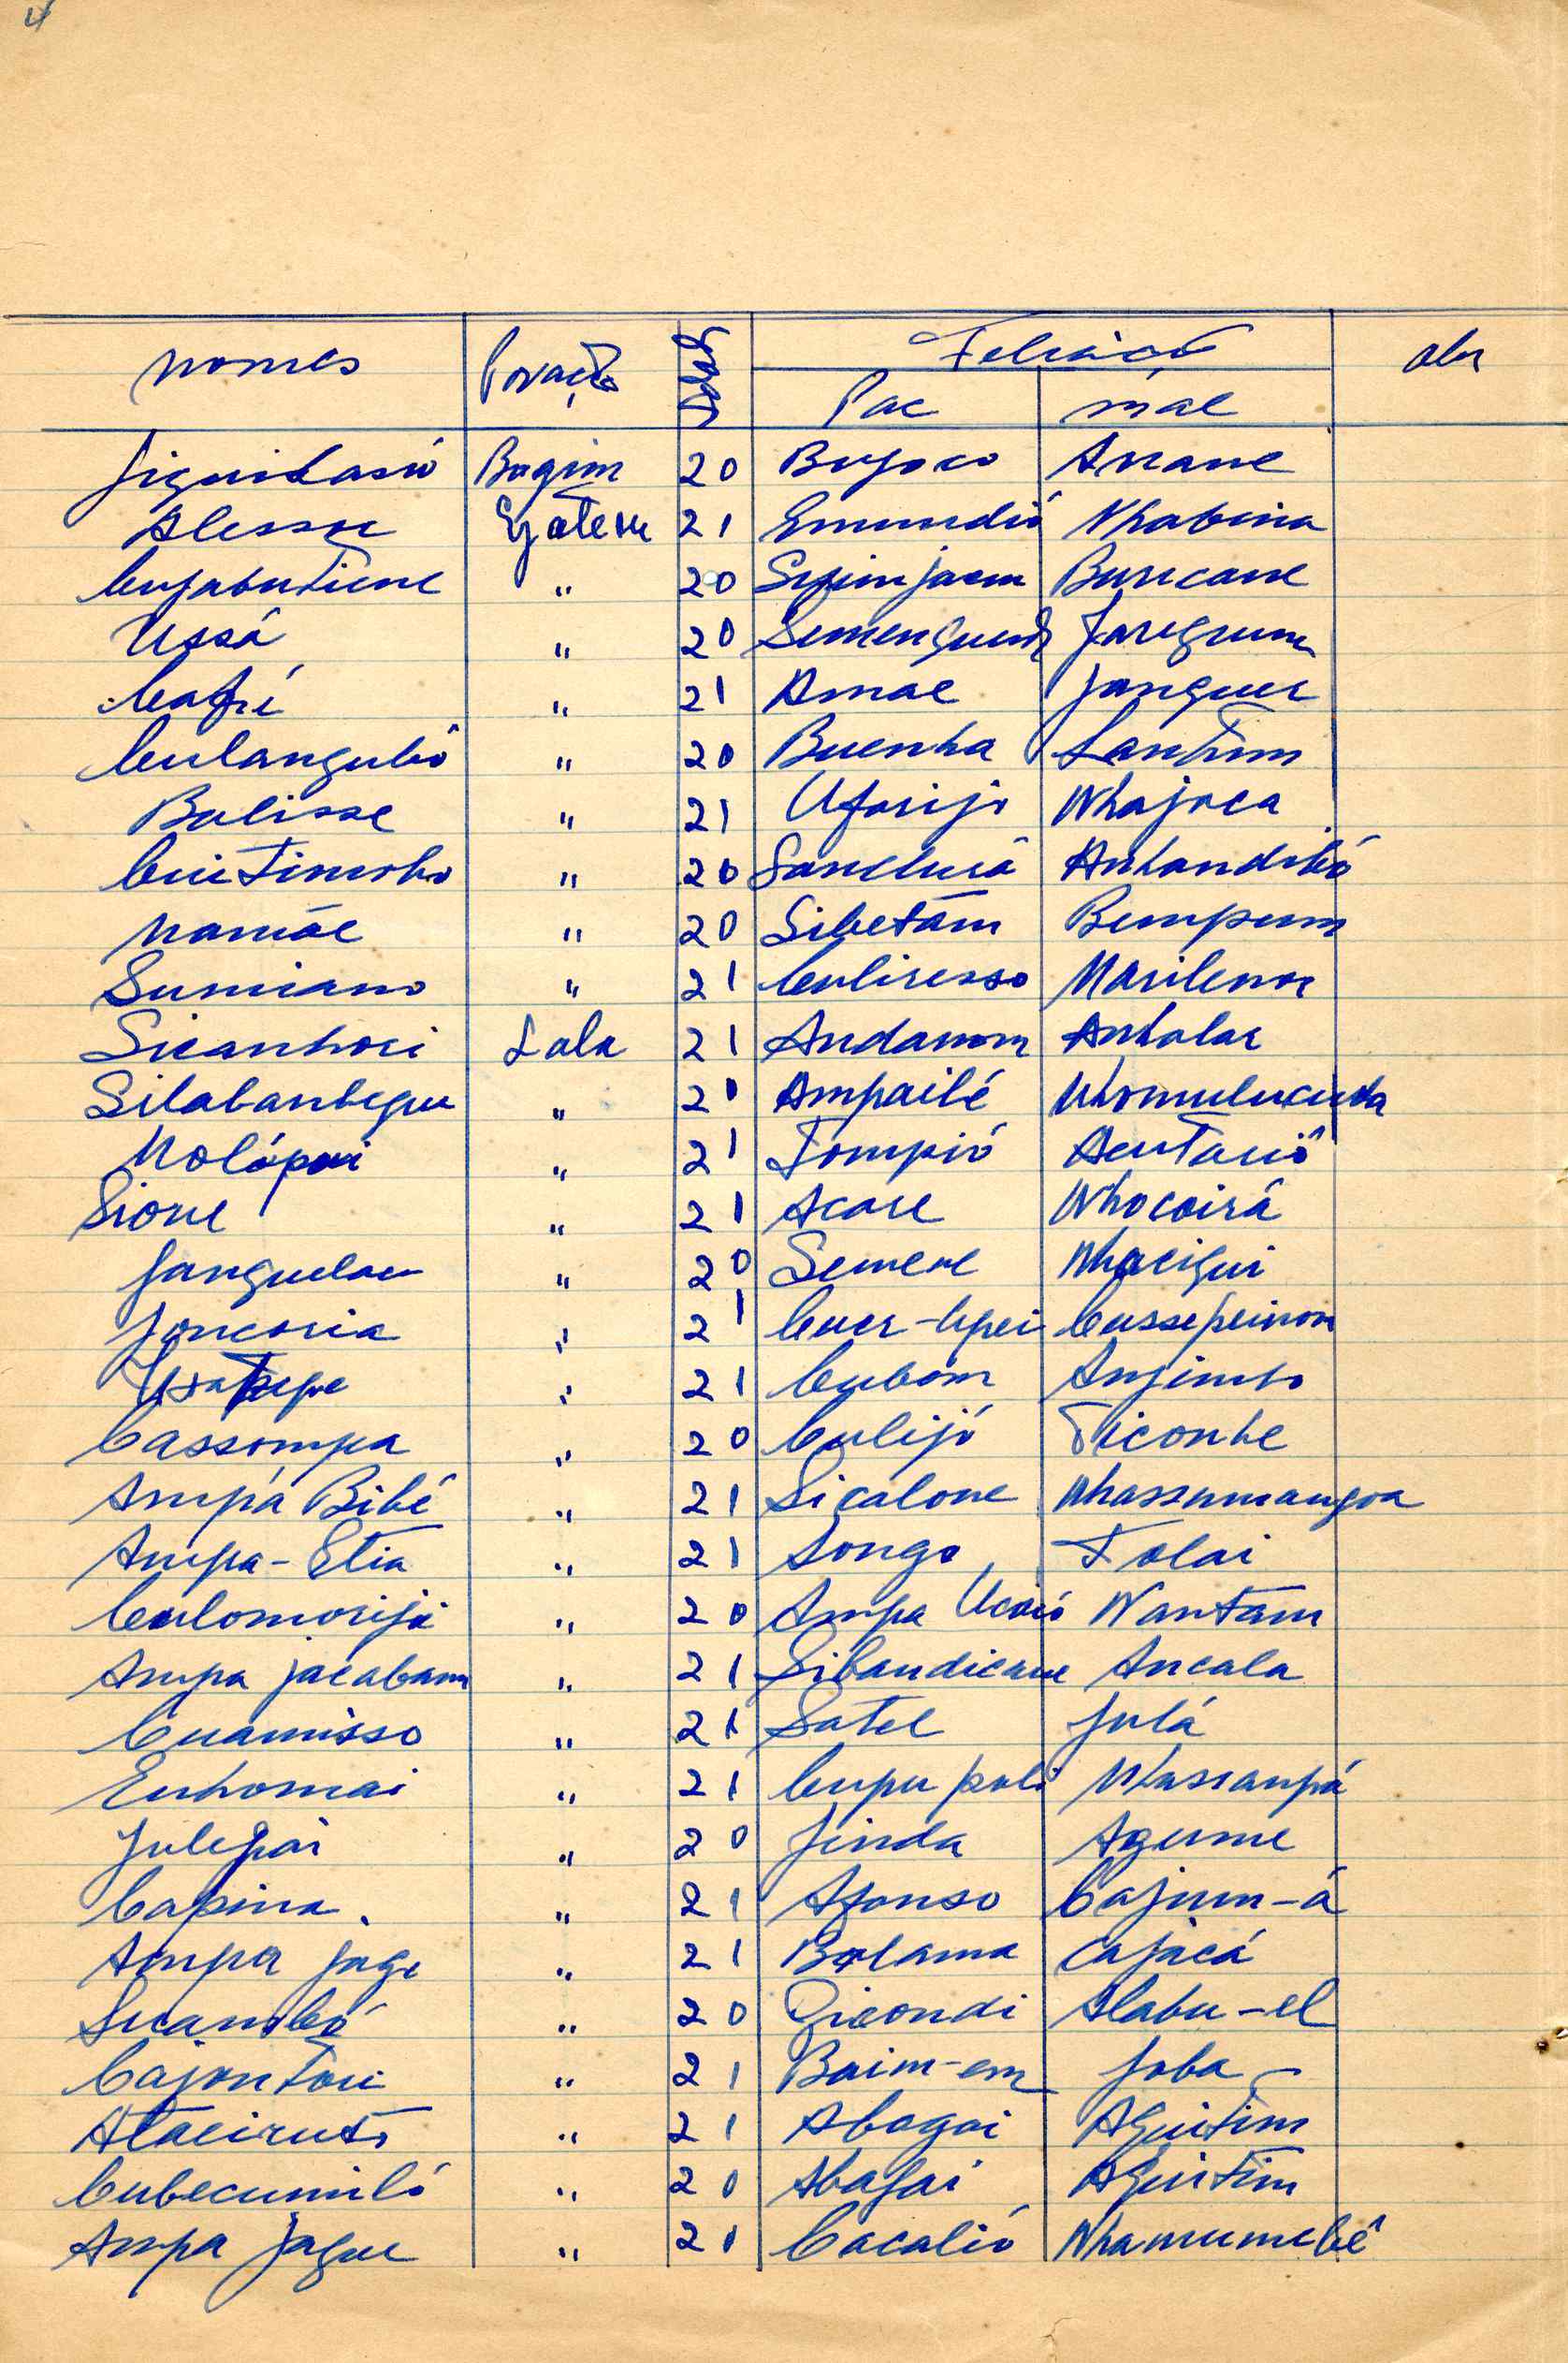 4
Nomes Povação Idade Feliação Obr
Pae Mãe
Jiguidasió Bagim 20 Bujoco Anane
Alessu Ejatem 21 Emundió Nhabina
Cujabutiene " 20 Buricane
Ussá " 20 Semenguende Jaregrum
Cafié " 21 Amae Janguer
Culangubô " 20 Buenha Santim
Balisse " 21 Uforijo Nhajoca
Cuitimoho " 20 Sanchuiá Anhandibó
Namãe " 20 Sibetám Bempum
Sumiano " 21 Culiresso Marilenor
Sicanhori Lala 21 Andamom Anhalar
Silabanhegue " 21 Ampailé Nhomulucunha
Nolópoi " 21 Tompió
Sione " 21 Acare Nhocoirá
Janguelae " 20 Semene Nhaeigui
Joncoria " 21 Cuer-Upei Cussepeinom
" 21 Cubom Anjinho
Cassompa " 20 Culijó Ticonhe
Ampá Bibé " 21 Sicalone Nhassumangoa
Ampa-Etia " 21 Songo Tolai
Culomorijó " 20 Ampa Ucaió Nantam
Ampa jacabam " 21 Sibandicane Ancala
Cuamisso " 21 Satel Julá
Enhomai " 21 Cupu pali Nhassanpá
Julepai " 20 Jinda Agume
Capina. " 21 Afonso Cajum-á
Ampa jage " 21 Bolama Cajacá
Sucambó " 20 Ricondi Alabu-el
Cajontoie " 21 Baim-em Joba
Ataciruto " 21 Abagai Aguitim
Cubecumiló " 20 Abagai Aguitim
Ampa Jague " 21 Cacalió Nhamumebê